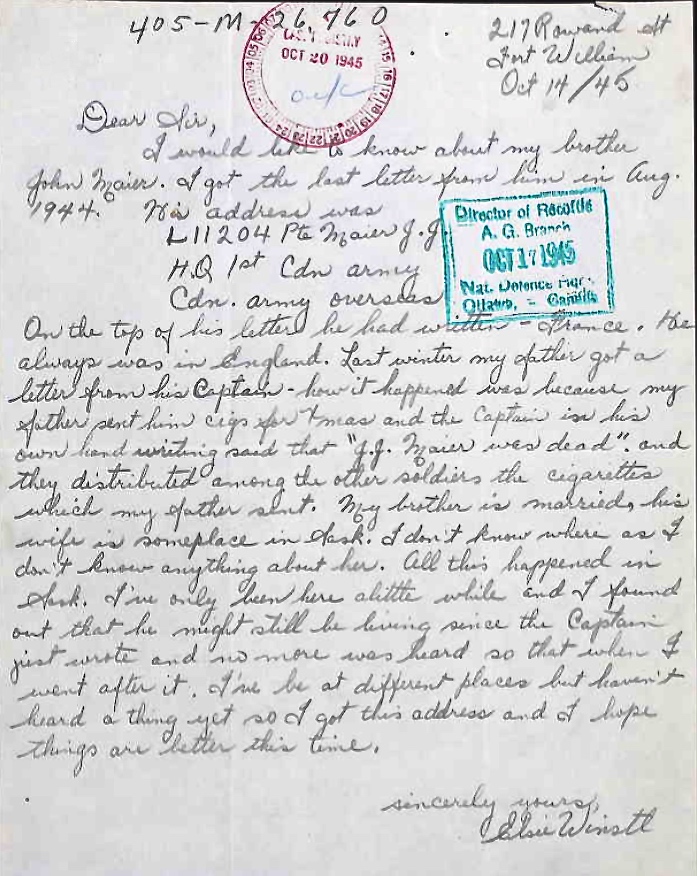 405-M-26,760
OCT 20 1945
217 Rowand St
Fort William
Oct 14/45
Dear Sir,
I would like to know about my brother
John Maier. I got the last letter from him in Aug.
1944. His address was
L11204 Pte Maier J.J.
H.Q 1st Cdn army
Cdn. army overseas
Director of Records
A. G. Branch
OCT 17 1945
Nat. Defence Hqr.
Ottawa, - Canada
On the top of his letter he had written - France. He
always was in England. Last winter my father got a
letter from his Captain - how it happened was because my
father sent him cigs for Xmas and the Captain in his
own hand writing said that "J.J. Maier was dead". and
they distributed among the other soldiers the cigarettes
which my father sent. My brother is married, his
wife is someplace in Sask. I don't know where as I
don't know anything about her. All this happened in
Sask. I've only been here alittle while and I found
out that he might still be living since the Captain
just wrote and no more was heard so that when I
went after it. I've be at different places but haven't
heard a thing yet so I got this address and I hope
things are better this time.
sincerely yours,
Elsie